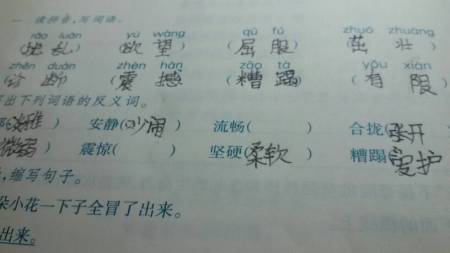 一 读拼音,写词语。
rǎo luàn yù wàng qū fú zhuó zhuàng
(扰乱) (欲望) (屈服) (茁壮)
zhěn duàn zhèn hàn zāo tà yǒu xiàn
(诊断) (震撼) (糟蹋) (有限)
出下列词语的反义词。
安静(吵闹) 流畅( ) 合拢(张开
微弱) 震惊( ) 坚硬(柔软) 糟蹋(爱护
,缩写句子。
朵小花一下子全冒了出来。
出来。